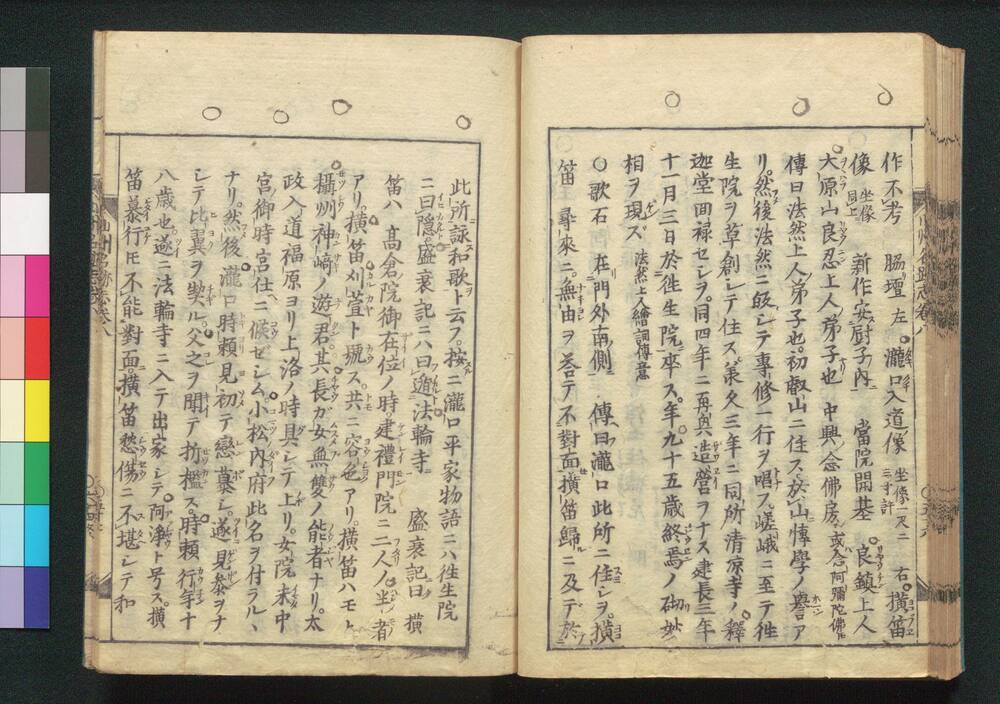 作不考 脇壇左 瀧口入道像 坐像一尺二三寸許 右 横笛
像 坐像同上 新作安厨子内 當院開基 良鎮上人
大原山良忍上人弟子也 中興念佛房 或念阿彌陀佛
傳曰法然上人弟子也初叡山ニ住ス於山博學ノ譽ア
リ然後法然ニ皈シテ專修一行ヲ唱フ嵯峨ニ至テ徃
生院ヲ草創シテ住ス承久三年ニ同所清凉寺ノ釋
迦堂回禄セシヲ同四年ニ再興造營ヲナス建長三年
十一月三日於徃生院卒ス年九十五歳終焉ノ砌妙
相ヲ現ズ 法然上人繪詞傳意
〇歌石 在門外南側 傳曰瀧口此所ニ住シヲ横
笛尋來ニ無由ヲ荅テ不對面横笛歸ルニ及デ於
此所詠和歌ト云フ按ニ瀧口平家物語ニハ徃生院
ニ曰隠盛衰記ニハ曰遁法輪寺 盛衰記曰 横
笛ハ 高倉院御在位ノ時建禮門院ニ二人ノ半者
アリ横笛刈萱ト號ス共ニ容色アリ横笛ハモト
攝州神崎ノ遊君其長ガ女無雙ノ能者ナリ太
政入道福原ヨリ上洛ノ時具シテ上リ女院未中
宮御時宮仕ニ候ゼシム小松内府此名ヲ付ラル、
ナリ然後瀧口時頼見初テ戀慕シ遂見參ヲナ
シテ比翼ヲ契ル父之ヲ聞テ折檻ス時頼行年十
八歳也遂ニ法輪寺ニ入テ出家シテ阿淨ト号ス横
笛慕行𪜈不能對面横笛愁傷ニ不堪シテ和